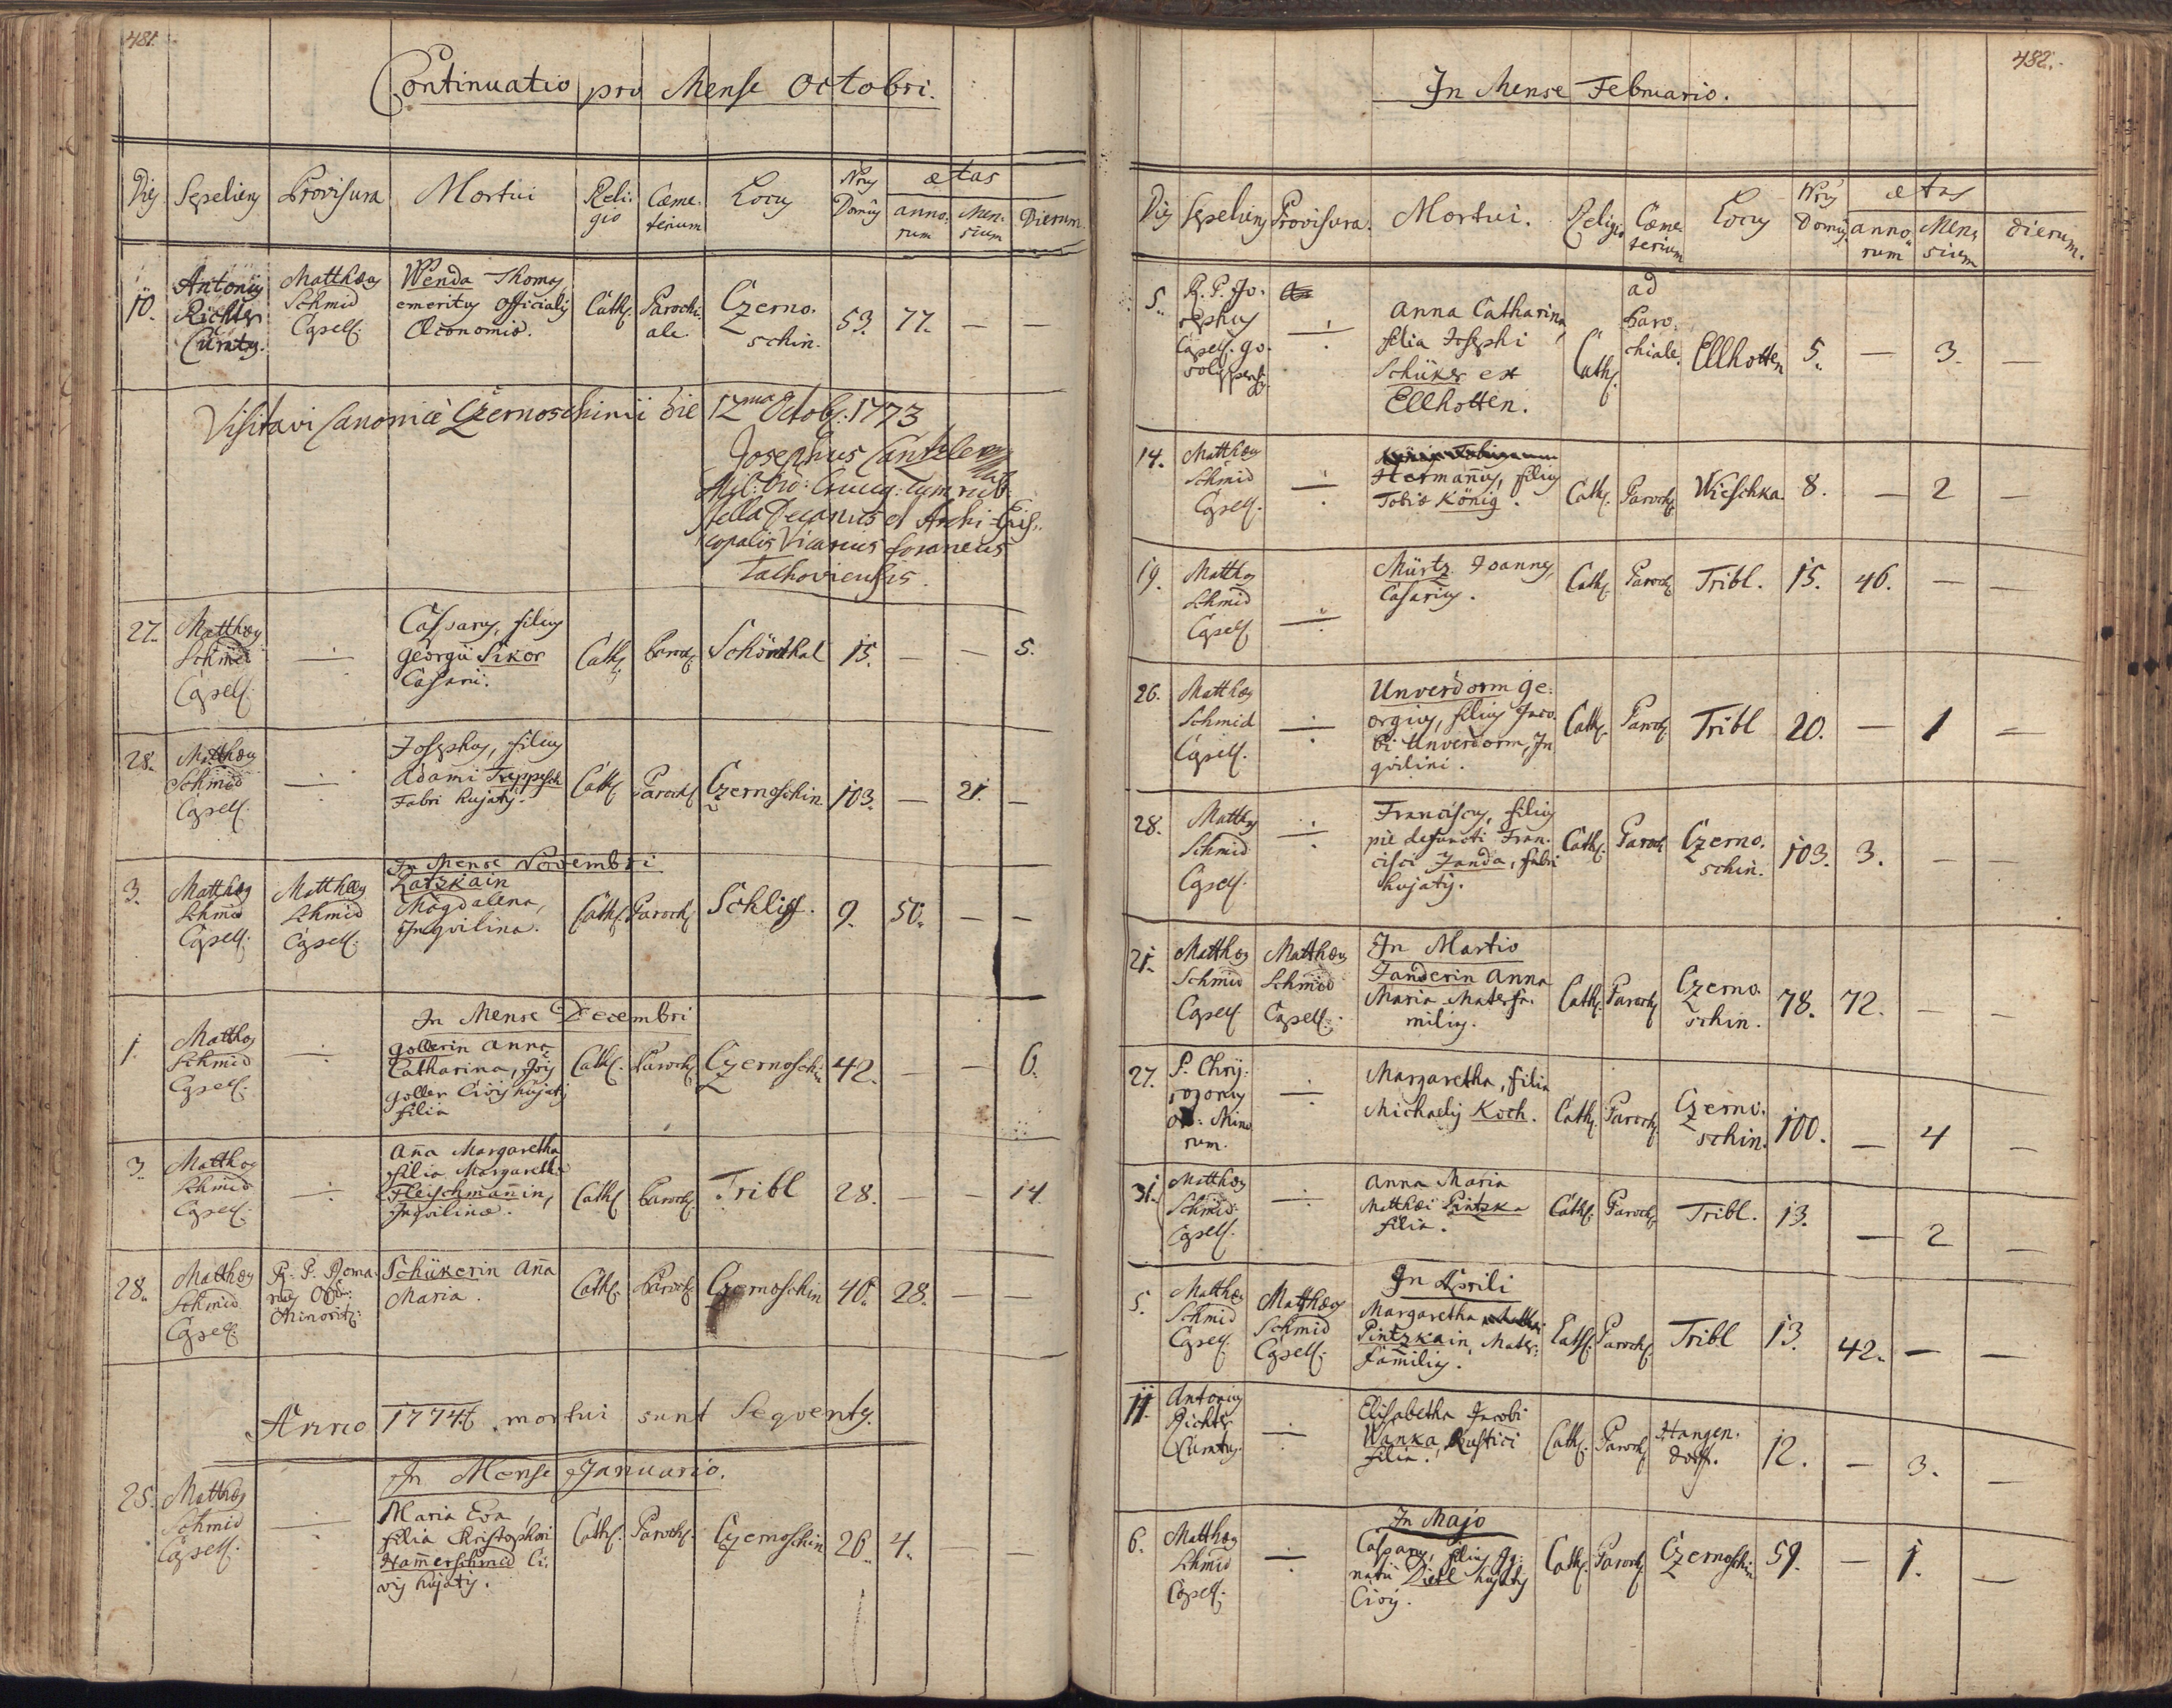 481.
Continuatio pro Mense Octobri.
Dies Sepeliens Provisura Mortui Religio Cæmeterium Locus Nrus Domus ætas annorum Mensium Dierum
10. Antonius Richter Curatus. Matthæus Schmid Capell. Wenda Thomas, emeritus officialis Œconomiæ. Cath. Parochiale. Czernoschin. 53. 77. — —
Visitavi Canonicè Czernoschinii die 12ma Octob. 1773
Josephus Cantzler
Mil: Ord: Cruci: cum rub:
stella Decanus et Archi-Epis-
copalis Vicarius foraneus
Tachoviensis.
27. Matthæus Schmid Capell. ÷ Casparus, filius Georgii Sikor Casarii. Cath. Paroch. Schönthal 15. — — 5.
28. Matthæus Schmid Capell. ÷ Josephus, filius Adami Treppesch Fabri hujatis. Cath. Paroch. Czernoschin 103. — 21. —
In Mense Novembri
3. Matthæus Schmid Capell. Matthæus Schmid Capell. Latzkain Magdalena, Inqvilina. Cath. Paroch. Schliff. 9. 50. — —
In Mense Decembri
1. Matthæus Schmid Capell. ÷ Gollerin Anna Catharina, Goller Civis hujatis filia Cath. Paroch. Czernoschin 42. — — 6.
3. Matthæus Schmid Capell. ÷ Aña Margaretha filia Margaretha Fleischmañin, Inqvilinæ. Cath. Paroch. Tribl 28. — — 14
28. Matthæus Schmid Capell. R. P. Minorit: Schükerin Aña Maria. Cath. Paroch. Czernoschin 40. 28. — —
Anno 1774t mortui sunt Seqventes.
In Mense Januario.
25. Matthæus Schmid Capell. ÷ Maria Eva filia Christophori Ham̃erschmid Civis hujatis. Cath. Paroch. Czernoschin 26. 4. — —
482.
In Mense Februario.
Dies Sepeliens Provisura. Mortui. Religio Cæmeterium Locus Nrus Domus ætas annorum Mensium dierum.
5. R. P. Josephus Capell. ÷ Anna Catharina, filia Josephi Schüker ex Ellhotten. Cath. ad Parochiale. Ellhotten 5. — 3. —
14. Matthæus Schmid Capell. ÷ Hermañus, filius Tobiæ König. Cath. Paroch. Wieschka 8. — 2 —
19. Matthæus Schmid Capell. ÷ Mürtz Joannes, Casarius. Cath. Paroch. Tribl. 15. 46. — —
26. Matthæus Schmid Capell. ÷ Unverdorm Georgius, filius Jacobi Unverdorm, Inqvilini. Cath. Paroch. Tribl 20. — 1 —
28. Matthæus Schmid Capell. ÷ Franciscus, filius piè defuncti Francisci Janda, fabri hujatis. Cath. Paroch. Czernoschin. 103. 3. — —
In Martio
21. Matthæus Schmid Capell. Matthæus Schmid Capell. Janderin Anna Maria Materfamilias. Cath. Paroch. Czernoschin. 78. 72. — —
27. P. Chrysogonus Ord: Minorum. ÷ Margaretha, filia Michaelis Koch. Cath. Paroch. Czernoschin. 100. — 4 —
31. Matthæus Schmid Capell. ÷ Anna Maria Matthæi Pintzka filia. Cath. Paroch. Tribl. 13. — 2 —
In Aprili
5. Matthæus Schmid Capell. Matthæus Schmid Capell. Margaretha Pintzkain, Materfamilias. Cath. Paroch. Tribl 13. 42. — —
11. Antonius Richter Curatus. ÷ Elisabetha Jacobi Wanka, Rustici filia. Cath. Paroch. Hangendorf. 12. — 3. —
In Majo
6. Matthæus Schmid Capell. ÷ Casparus, filius Ignatii Dietl hujatis Civis. Cath. Paroch. Czernoschin 59. — 1. —